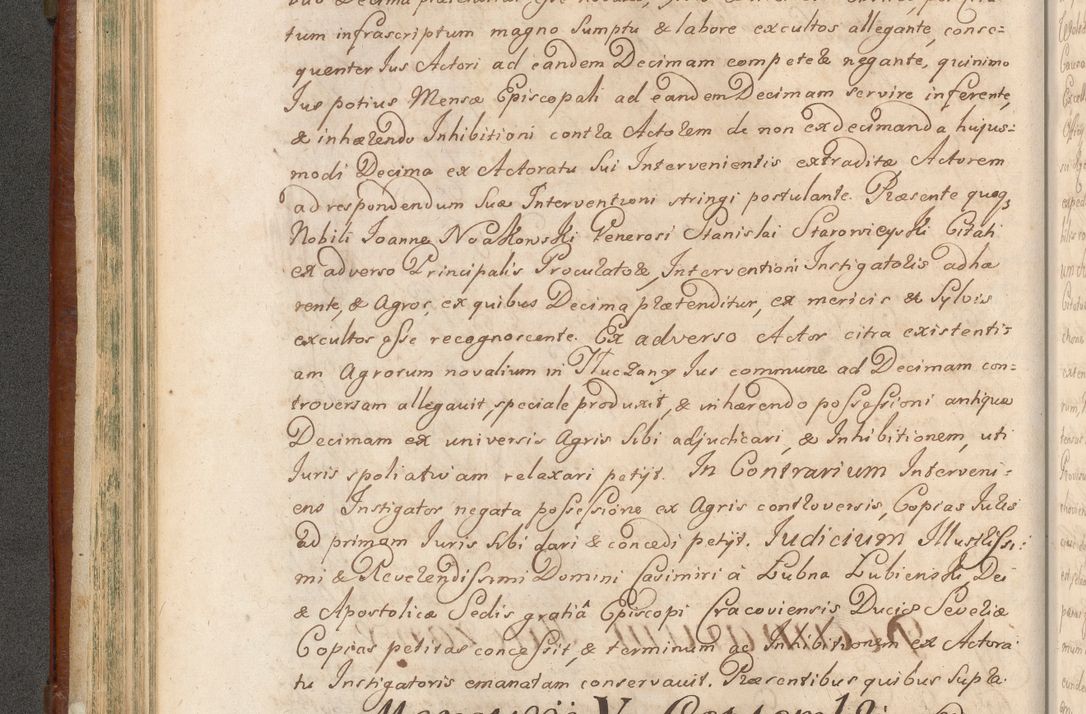 tum infrascriptum magno Sumptu & labore excultos allegante, conse=
quenter Jus Actori ad eandem Decimam competere negante, quinimo
Jus potius Mensæ Episcopali ad eandem Decimam servire inferente,
& inhærendo Inhibitioni contra Actorem de non exdecimanda hujus=
modi Decima ex Actoratu Sui Intervenientis extradita Actorem
ad respondendum Suæ Interventioni stringi postulante. Præsente quoq3
Nobili Joanne Noakowski Generosi Stanislai Starowieyski Citati
ex adverso Principalis Procuratore, Interventioni Instigatoris adhæ
rente, & Agros, ex quibus Decima prætenditur, ex mericis & Sylvis
excultos esse recognoscente. Ex adverso Actor citra existenti=
am Agrorum novalium in Tłuczany Jus commune ad Decimam con=
troversam allegavit, speciale produxit, & inhærendo possessioni antiquæ
Decimam ex universis Agris Sibi adjudicari, & Inhibitionem, uti
Juris spoliativam relaxari petijt. In Contrarium Interveni=
ens Instigator negata possessione ex Agris controversis, Copias Juris
ad primam Juris Sibi dari & concedi petijt. Judicium Illustrissi=
mi & Reverendissimi Domini Casimiri à Lubna Lubienski, Dei
& Apostolicæ Sedis gratiâ Episcopi Cracoviensis Ducis Severiæ
Copias petitas concessit, & terminum ad Inhibitionem ex Actora
tu Instigatoris emanatam conservavit. Præsentibus quibus Supra.